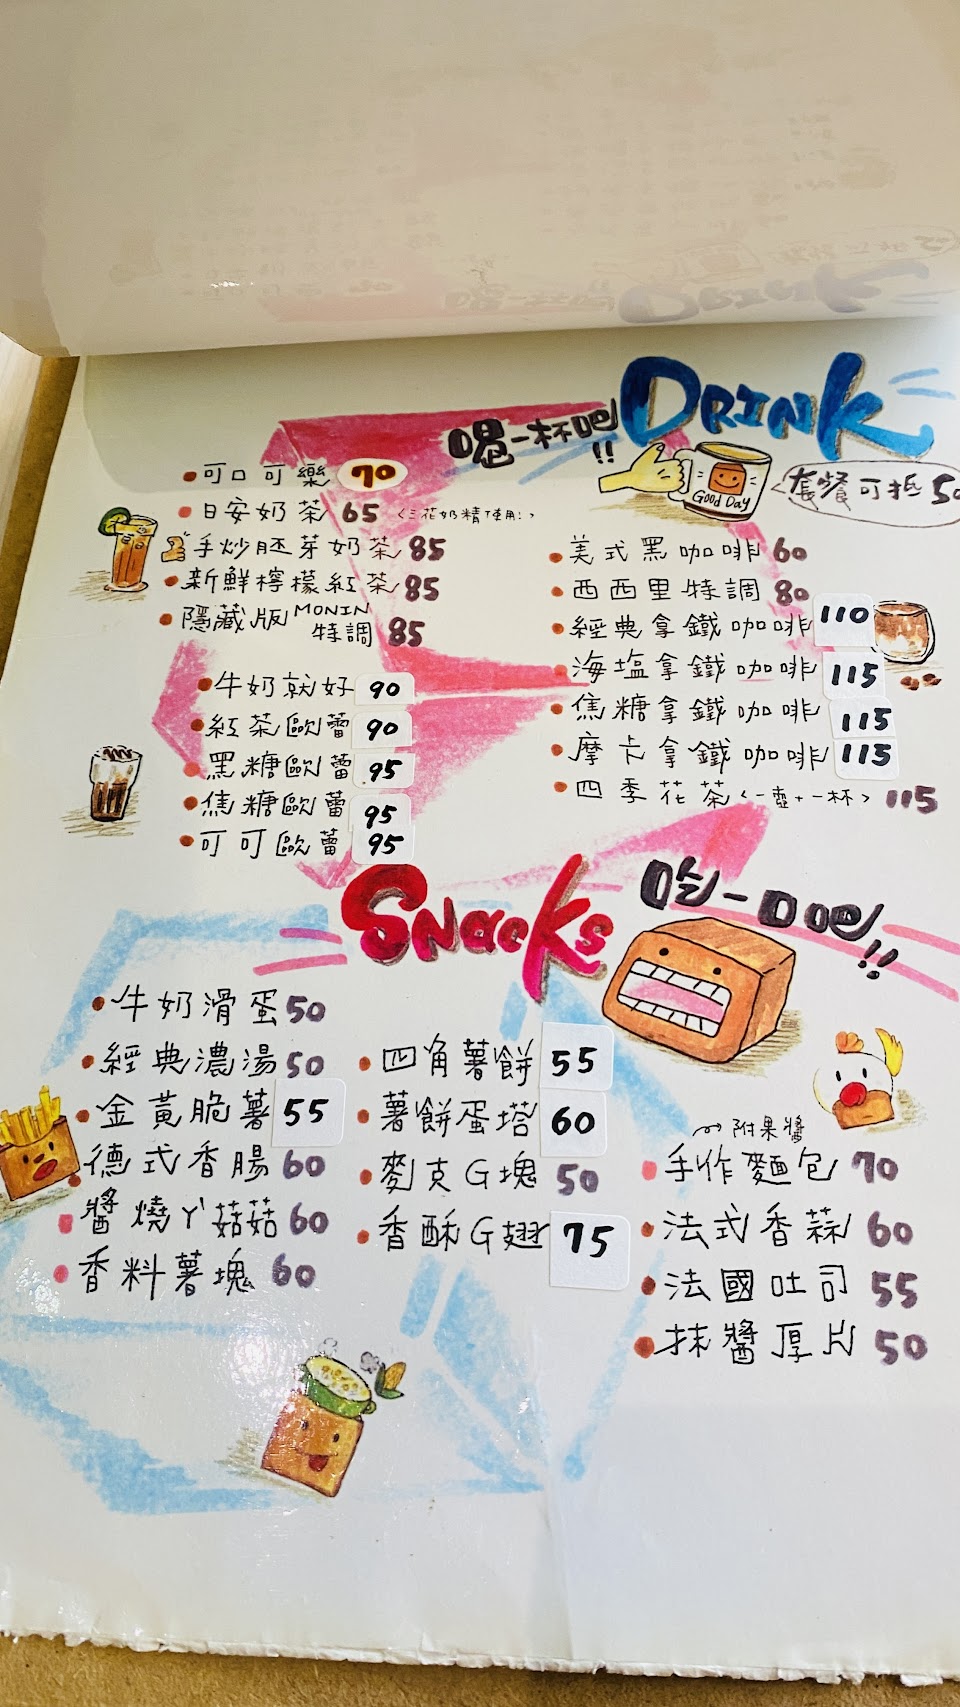 DRINK
喝一杯吧!!
Good Day
套餐可抵50
可口可樂 70
日安奶茶 65
手炒胚芽奶茶 85
新鮮檸檬紅茶 85
隱藏版MONIN特調 85
牛奶就好 90
紅茶歐蕾 90
黑糖歐蕾 95
焦糖歐蕾 95
可可歐蕾 95
美式黑咖啡 60
西西里特調 80
經典拿鐵咖啡 110
海塩拿鐵咖啡 115
焦糖拿鐵咖啡 115
摩卡拿鐵咖啡 115
四季花茶<一壺+一杯> 115
Snacks
吃一口吧!!
牛奶滑蛋 50
經典濃湯 50
金黃脆薯 55
德式香腸 60
醬燒ㄚ菇菇 60
香料薯塊 60
四角薯餅 55
薯餅蛋塔 60
麥克G塊 50
香酥G翅 75
附果醬
手作麵包 70
法式香蒜 60
法國吐司 55
抹醬厚片 50